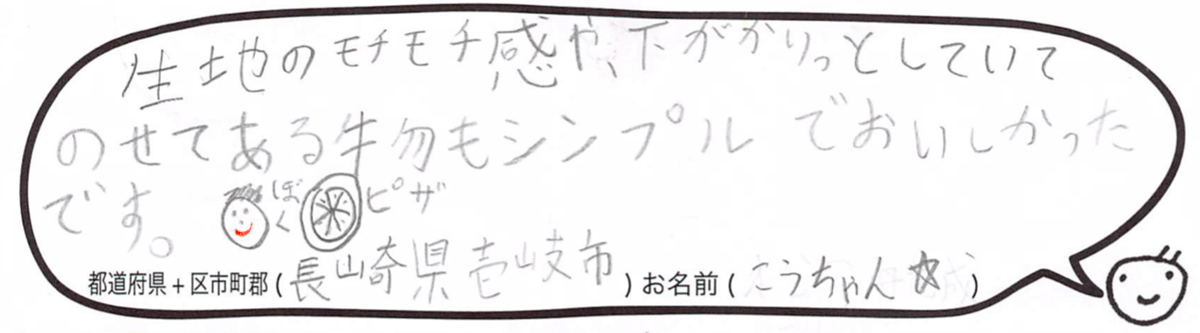 生地のモチモチ感や、下がかりっとしていて
のせてある物もシンプルでおいしかった
です。 ぼく ピザ
都道府県+区市町郡(長崎県壱岐市)お名前(こうちゃん☆)